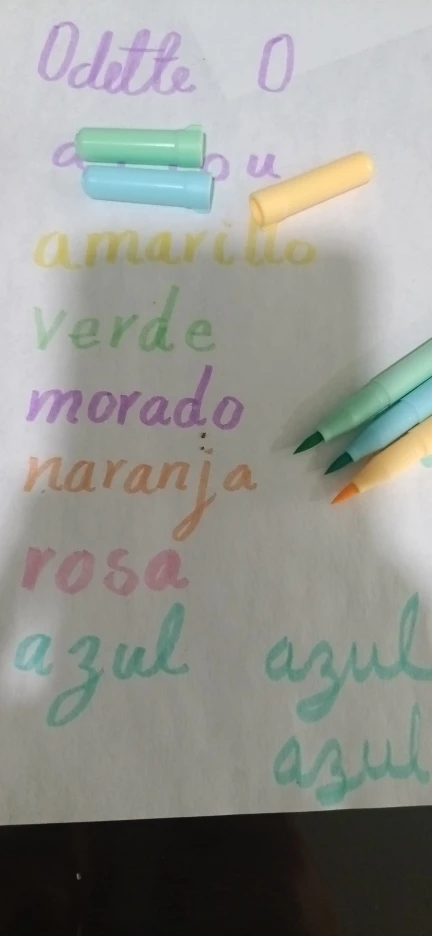 Odette O
amarillo
verde
morado
naranja
rosa
azul azul
azul